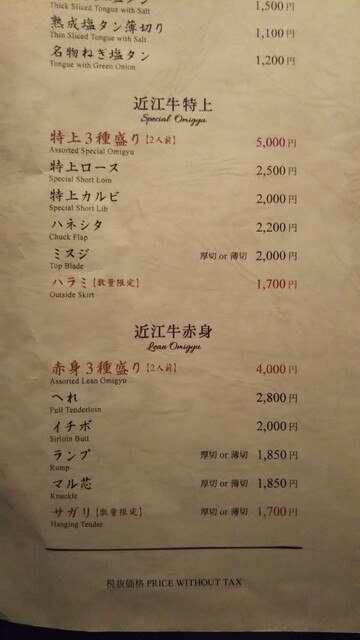 Thick Sliced Tongue with Salt 1,500円
熟成塩タン薄切り 1,100円
Thin Sliced Tongue with Salt
名物ねぎ塩タン 1,200円
Tongue with Green Onion
近江牛特上
Special Omigyu
特上3種盛り【2人前】 5,000円
Assorted Special Omigyu
特上ロース 2,500円
Special Short Loin
特上カルビ 2,000円
Special Short Lib
ハネシタ 2,200円
Chuck Flap
ミスジ 厚切 or 薄切 2,000円
Top Blade
ハラミ【数量限定】 1,700円
Outside Skirt
近江牛赤身
Lean Omigyu
赤身3種盛り【2人前】 4,000円
Assorted Lean Omigyu
へれ 2,800円
Full Tenderloin
イチボ 2,000円
Sirloin Butt
ランプ 厚切 or 薄切 1,850円
Rump
マル芯 厚切 or 薄切 1,850円
Knuckle
サガリ【数量限定】 厚切 or 薄切 1,700円
Hanging Tender
税抜価格 PRICE WITHOUT TAX